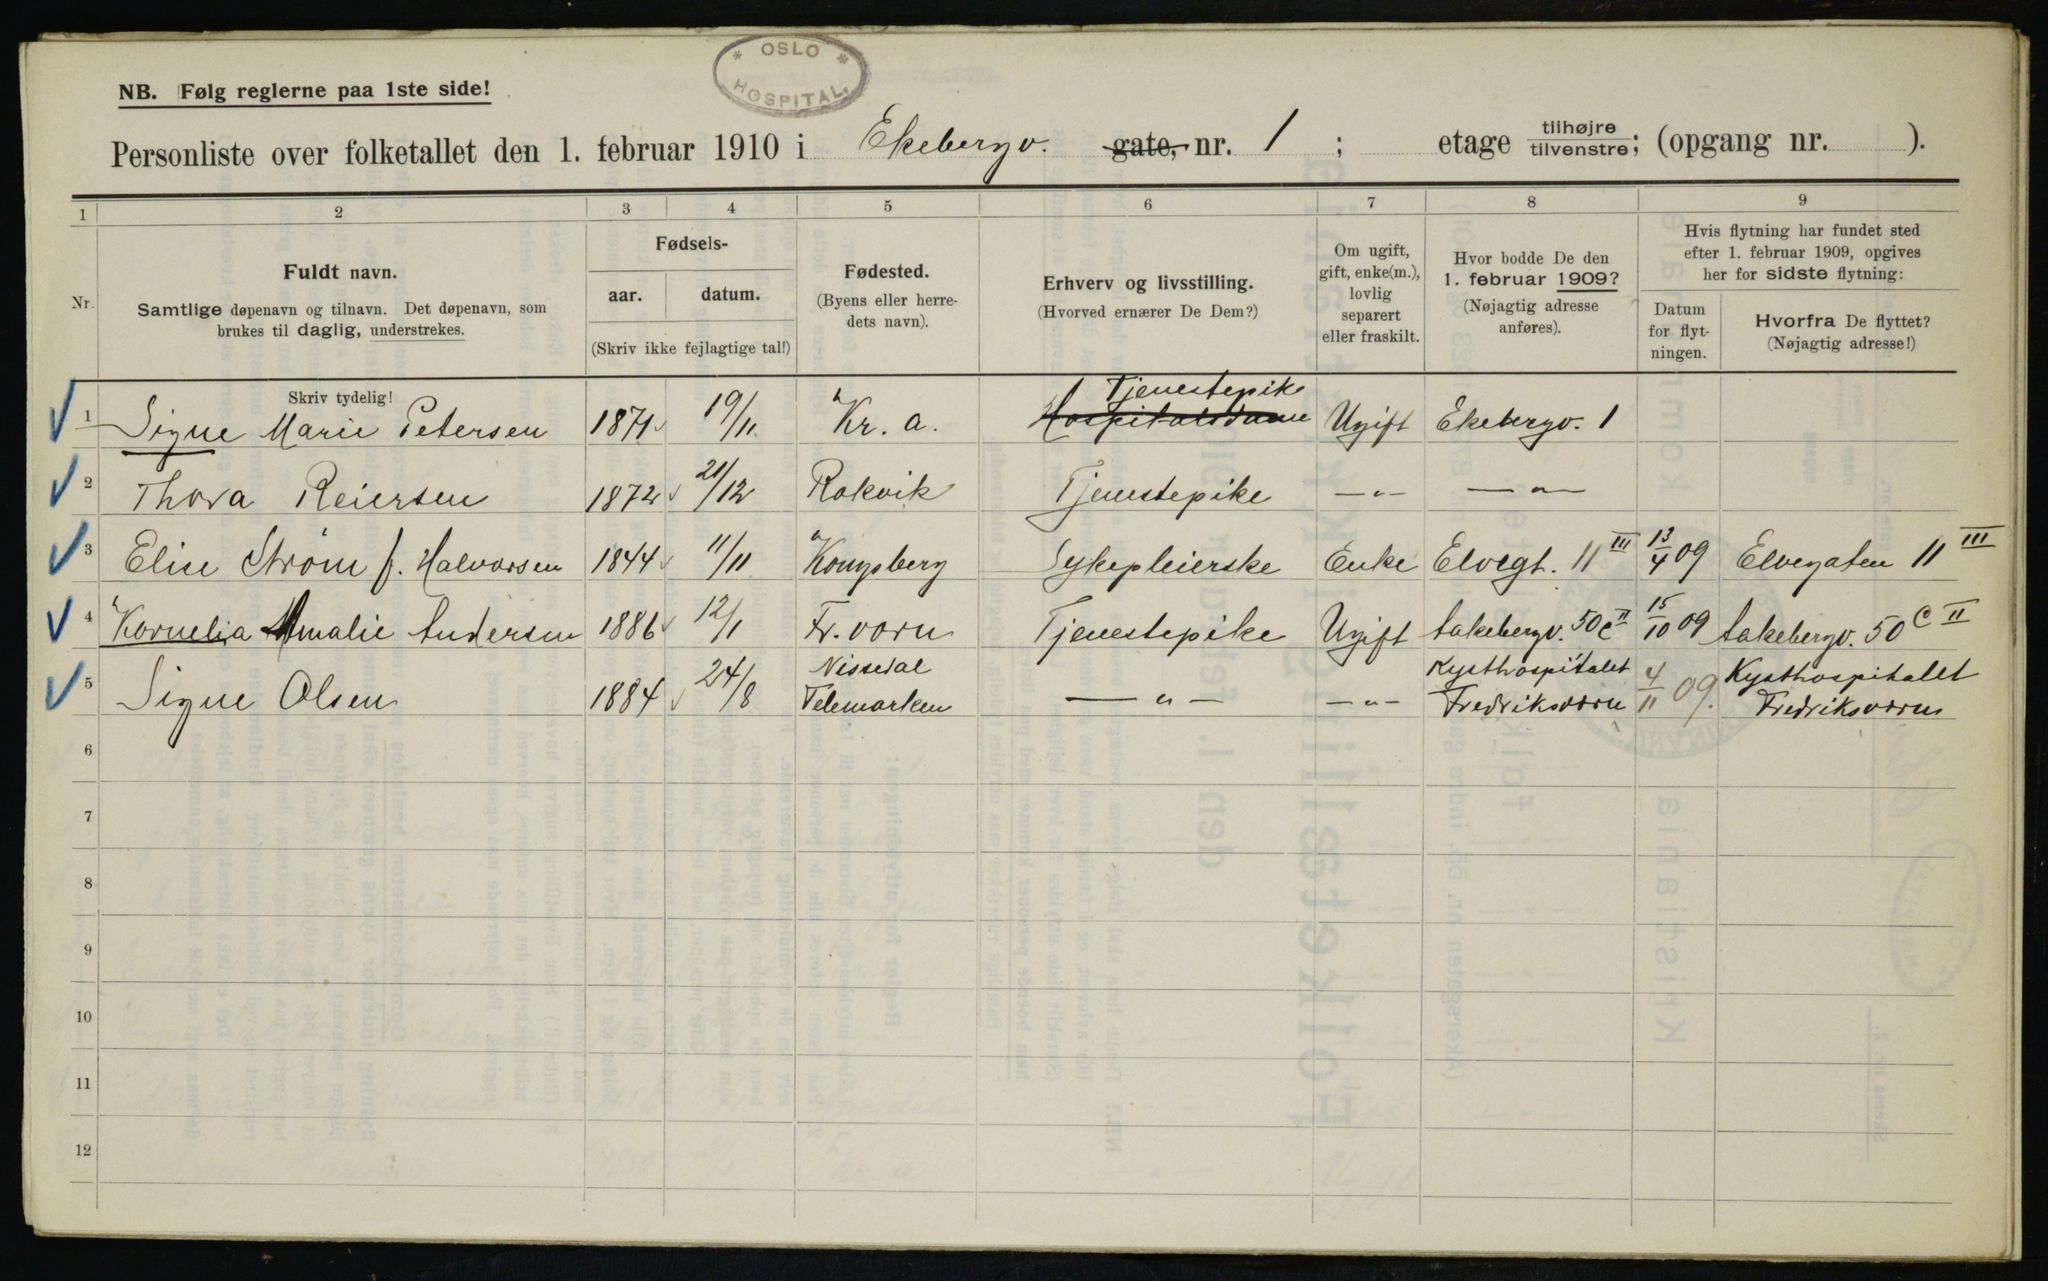 OSLO HOSPITAL.
NB. Følg reglerne paa 1ste side!
Personliste over folketallet den 1. februar 1910 i Ekebergv. gate, nr. 1 ; etage tilhøjre tilvenstre; (opgang nr. ).
1 2 3 4 5 6 7 8 9
Nr.
Fuldt navn.
Samtlige døpenavn og tilnavn. Det døpenavn, som
brukes til daglig, understrekes.
Fødsels-
aar. datum.
(Skriv ikke fejlagtige tal!)
Fødested.
(Byens eller herre-
dets navn).
Erhverv og livsstilling.
(Hvorved ernærer De Dem?)
Om ugift,
gift, enke(m.),
lovlig
separert
eller fraskilt.
Hvor bodde De den
1. februar 1909?
(Nøjagtig adresse
anføres).
Hvis flytning har fundet sted
efter 1. februar 1909, opgives
her for sidste flytning:
Datum
for flyt-
ningen.
Hvorfra De flyttet?
(Nøjagtig adresse!)
Skriv tydelig!
Tjenestepike
1 Signe Marie Petersen 1871 19/11 Kr. a. Ugift Ekebergv. 1
2 Thora Reiersen 1872 21/12 Rakvik Tjenestepike —"— —"—
3 Elise Strøm f. Halvorsen 1844 11/11 Kongsberg Sykepleierske Enke Elvegt. 11 III 13/4 09 Elvegaten 11 III
4 Kornelia Amalie Andersen 1886 12/1 Fr. vorn Tjenestepike Ugift Aakebergv. 50 C II 15/10 09 Aakebergv. 50 C II
5 Signe Olsen 1884 24/8 Nissedal Telemarken —"— —"— Kysthospitalet Fredriksvorn 4/11 09. Kysthospitalet Fredriksvorn
6
7
8
9
10
11
12